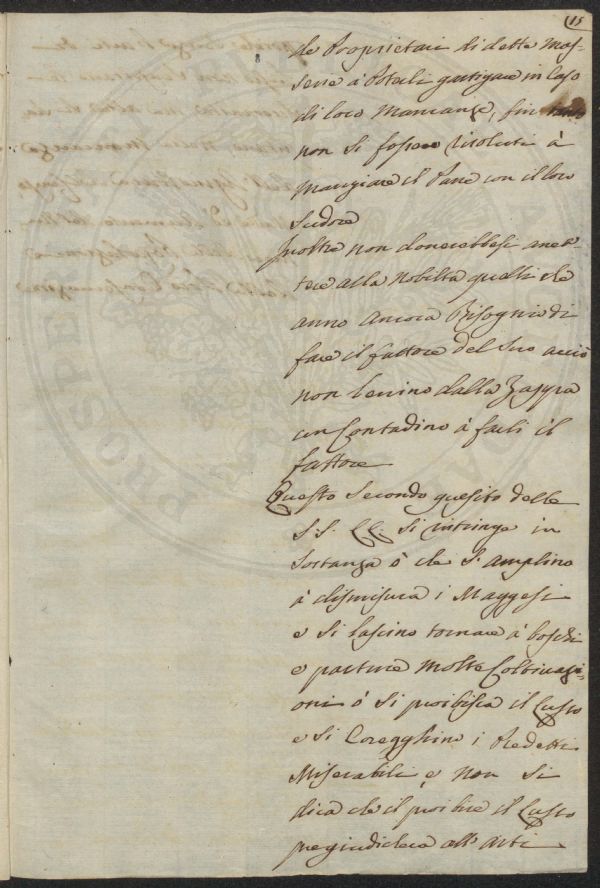 15
de Proprietari di dette Mas=
serie à Poterli gastigare in Caso
di loro Mancanze, fin tanto
non si fossero risoluti à
Mangiare il Pane con il loro
Sudore
Inoltre non donerebbesi amet=
tere alla Nobilta quelli che
anno Ancora Bisognio di
fare il fattore del Suo acciò
non levino dalla Zappa
un Contadino à farli il
fattore
Questo Secondo quesito delle
S.S. LL. si intringe in
Sostanza ò che S. amplino
à dismisura i Maggesi
e si lascino tornare à boschi
e pasture Molte Coltivazi=
oni ò si proibisca il Lusso
e si Coregghino i Predetti
Miserabili, e non si
dica che il proibire il Lusso
pregiudichera all'arti